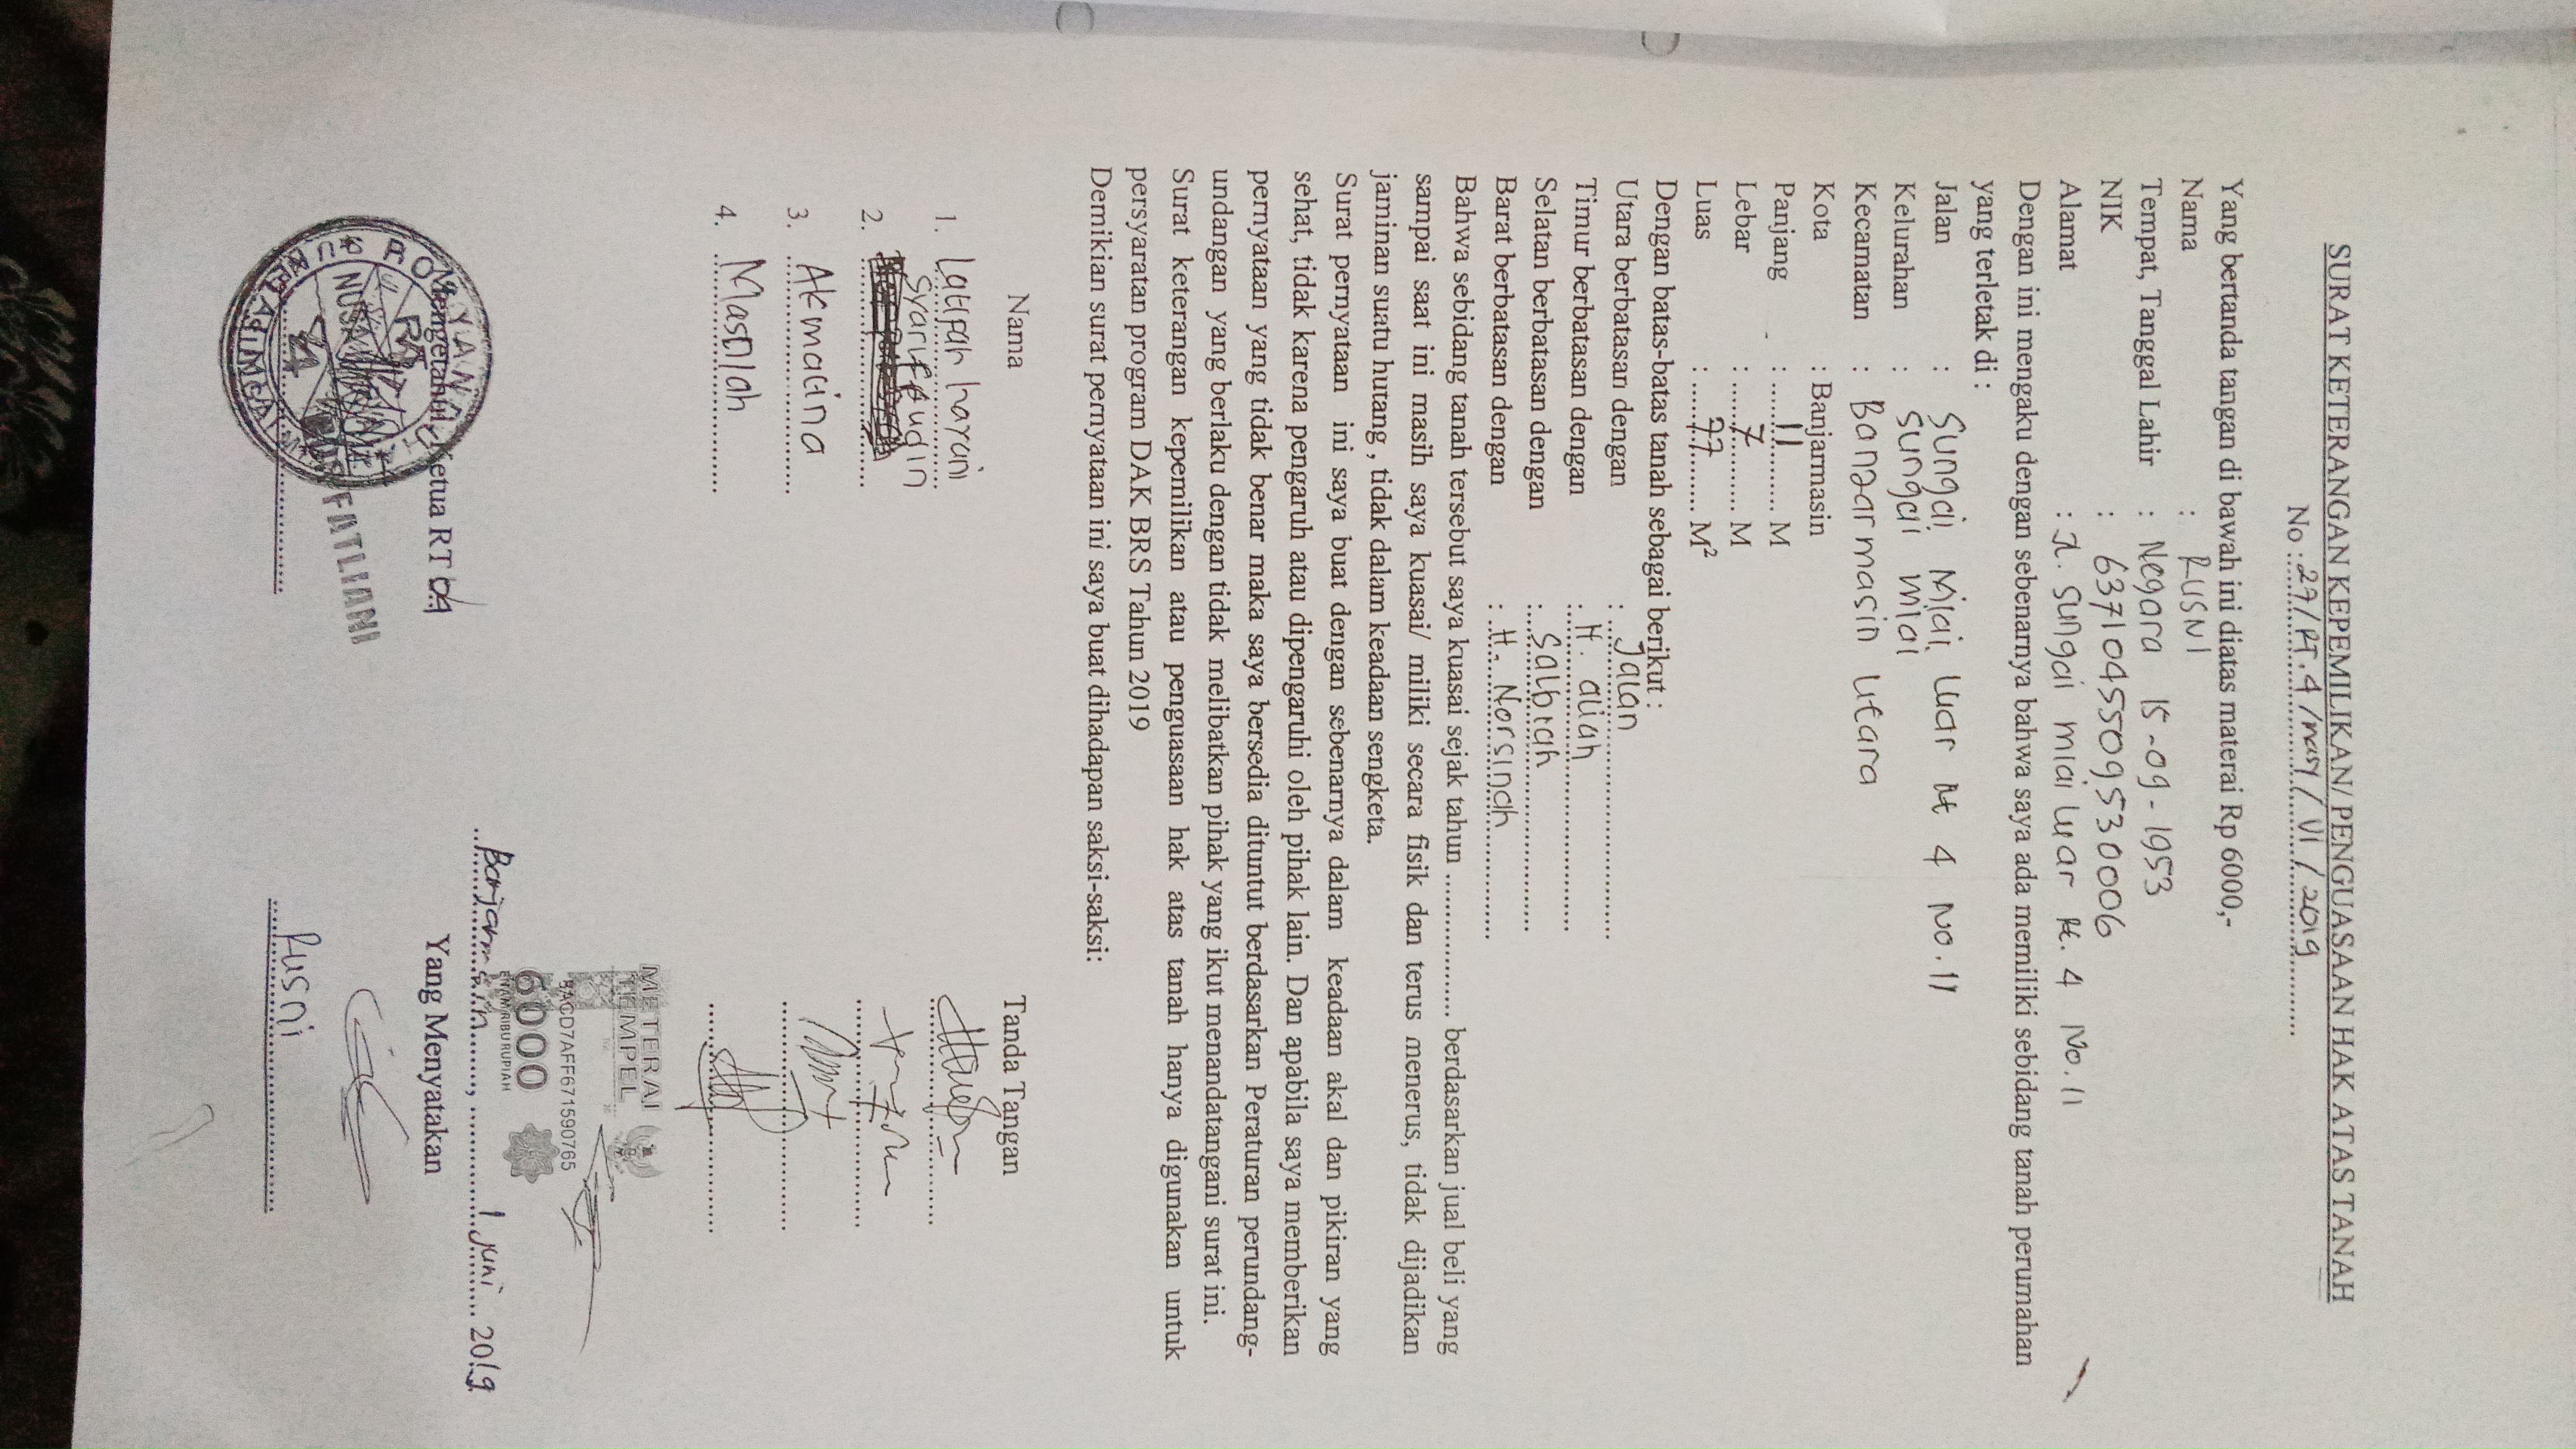 SURAT KETERANGAN KEPEMILIKAN/ PENGUASAAN HAK ATAS TANAH
No : 27/RT.4/msy/VI/2019
Yang bertanda tangan di bawah ini diatas materai Rp 6000,-
Nama : RUSNI
Tempat, Tanggal Lahir : Negara 15-09-1953
NIK : 6371045509530006
Alamat : Jl. Sungai miai luar Rt. 4 No. 11
Dengan ini mengaku dengan sebenarnya bahwa saya ada memiliki sebidang tanah perumahan
yang terletak di :
Jalan : Sungai Miai luar Rt 4 No. 11
Kelurahan : Sungai miai
Kecamatan : Banzarmasin utara
Kota : Banjarmasin
Panjang : 11 M
Lebar : 7 M
Luas : 77 M²
Dengan batas-batas tanah sebagai berikut :
Utara berbatasan dengan : Jalan
Timur berbatasan dengan : H. aliah
Selatan berbatasan dengan : Salbiah
Barat berbatasan dengan : H. Norsinah
Bahwa sebidang tanah tersebut saya kuasai sejak tahun ................ berdasarkan jual beli yang
sampai saat ini masih saya kuasai/ miliki secara fisik dan terus menerus, tidak dijadikan
jaminan suatu hutang , tidak dalam keadaan sengketa.
Surat pernyataan ini saya buat dengan sebenarnya dalam keadaan akal dan pikiran yang
sehat, tidak karena pengaruh atau dipengaruhi oleh pihak lain. Dan apabila saya memberikan
pernyataan yang tidak benar maka saya bersedia dituntut berdasarkan Peraturan perundang-
undangan yang berlaku dengan tidak melibatkan pihak yang ikut menandatangani surat ini.
Surat keterangan kepemilikan atau penguasaan hak atas tanah hanya digunakan untuk
persyaratan program DAK BRS Tahun 2019
Demikian surat pernyataan ini saya buat dihadapan saksi-saksi:
Nama Tanda Tangan
1. Latipah harani
2. Syariffudin
3. Akmalina
4. Masniah
METERAI
TEMPEL
BACD7AFF671590765
6000
ENAM RIBU RUPIAH
Banjarmasin, 1 juni 2019
Mengetahui Ketua RT 04 Yang Menyatakan
RT
NUSA
FATLIANI
Rusni